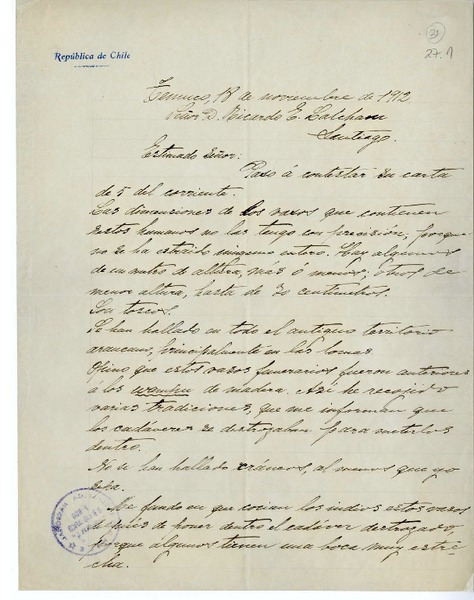 31
27.1
República de Chile
Temuco, 18 de noviembre de 1912.
Señor D. Ricardo E. Latcham
Santiago.
Estimado Señor:
Paso á contestar su carta
de 5 del corriente.
Las dimensiones de los vasos que contienen
restos humanos no las tengo con precisión, porque
no se ha estraído ninguno entero. Hay algunos
de un metro de altura, mas ó menos; otros de
menor altura, hasta de 70 centímetros.
Son toscos.
Se han hallado en todo el antiguo territorio
araucano, principalmente en las lomas.
Opino que estos vasos funerarios fueron anteriores
á los wampu de madera. Así he recojido
varias tradiciones, que me informan que
los cadáveres se destrozaban para meterlos
dentro.
No se han hallado cráneos, al menos que yo
sepa.
Me fundo en que cocian los indios estos vasos
después de poner dentro el cadáver destrozado
porque algunos tienen una boca muy estre-
cha.